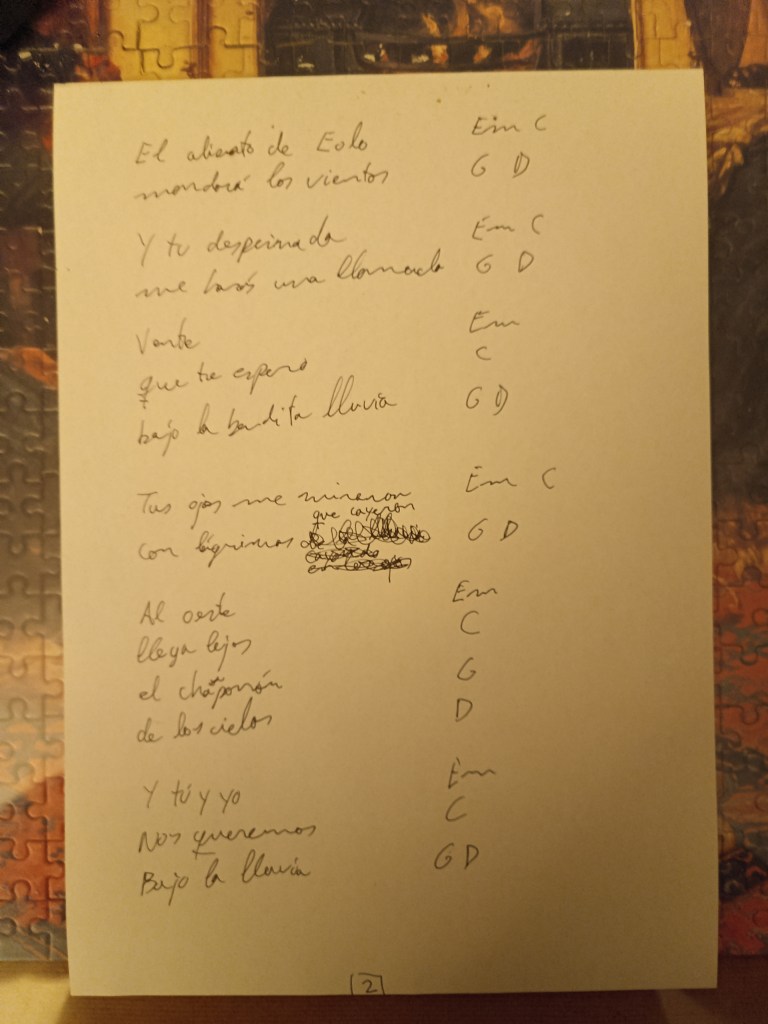 El aliento de Eolo Em C
mandará los vientos G D
Y tu despeinada Em C
me harás una llamada G D
Vente Em
que te espero C
bajo la bendita lluvia G D
Tus ojos me miraron Em C
que cayeron
con lágrimas G D
Al oeste Em
llega lejos C
el chaparrón G
de los cielos D
Y tú y yo Em
Nos queremos C
Bajo la lluvia G D
2